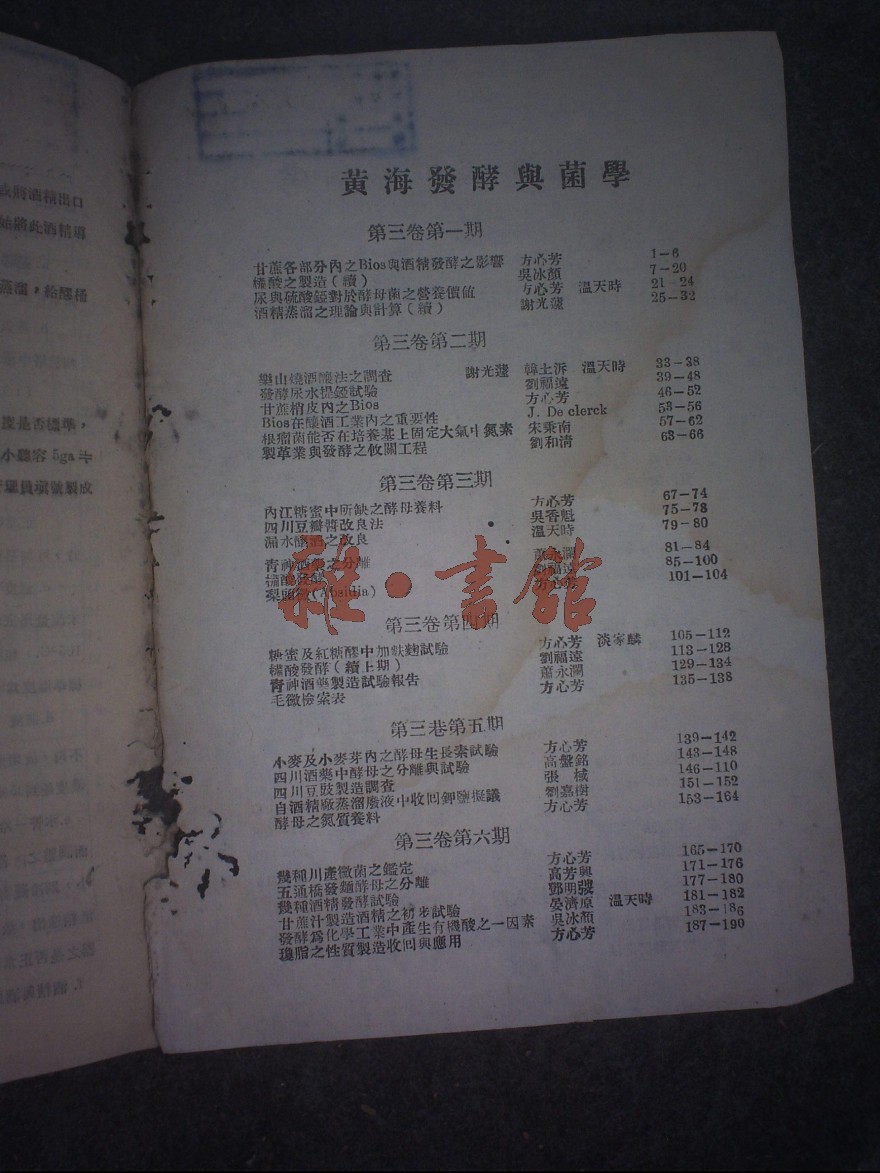 黃海發酵與菌學
第三卷第一期
甘蔗各部分內之Bios與酒精發酵之影響 方心芳 1-6
檬酸之製造(續) 吳冰顏 7-20
尿與硫酸錏對於酵母菌之營養價值 方心芳 溫天時 21-24
酒精蒸溜之理論與計算(續) 謝光蘧 25-32
第三卷第二期
樂山燒酒釀法之調查 謝光蘧 韓士泝 溫天時 33-38
發酵尿水提錏試驗 劉福遠 39-48
甘蔗梢皮內之Bios 方心芳 46-52
Bios在釀酒工業內之重要性 J. De clerck 53-56
根瘤菌能否在培養基上固定大氣中氮素 朱乘南 57-62
製革業與發酵之攸關工程 劉和淸 63-66
第三卷第三期
內江糖蜜中所缺之酵母養料 方心芳 67-74
四川豆瓣醬改良法 吳香魁 75-78
漏水釀酒之改良 溫天時 79-80
靑神酒藥之分離 蕭永瀾 81-84
檬酸發酵 劉福遠 85-100
(Absidia) 方心芳 101-104
雜·書館
第三卷第四期
糖蜜及紅糖醪中加麩麴試驗 方心芳 淡家麟 105-112
檬酸發酵(續上期) 劉福遠 113-128
靑神酒藥製造試驗報告 蕭永瀾 129-134
毛黴檢索表 方心芳 135-138
第三卷第五期
小麥及小麥芽內之酵母生長素試驗 方心芳 139-142
四川酒藥中酵母之分離與試驗 高盤銘 143-148
四川豆豉製造調查 張 棫 146-110
自酒精廠蒸溜廢液中收回鉀鹽擬議 劉嘉樹 151-152
酵母之氮質養料 方心芳 153-164
第三卷第六期
幾種川產黴菌之鑑定 方心芳 165-170
五通橋發麵酵母之分離 高芳興 171-176
幾種酒精發酵試驗 鄧朋號 177-180
甘蔗汁製造酒精之初步試驗 晏濟原 溫天時 181-182
發酵爲化學工業中產生有機酸之一因素 吳冰顏 183-186
瓊脂之性質製造收回與應用 方心芳 187-190